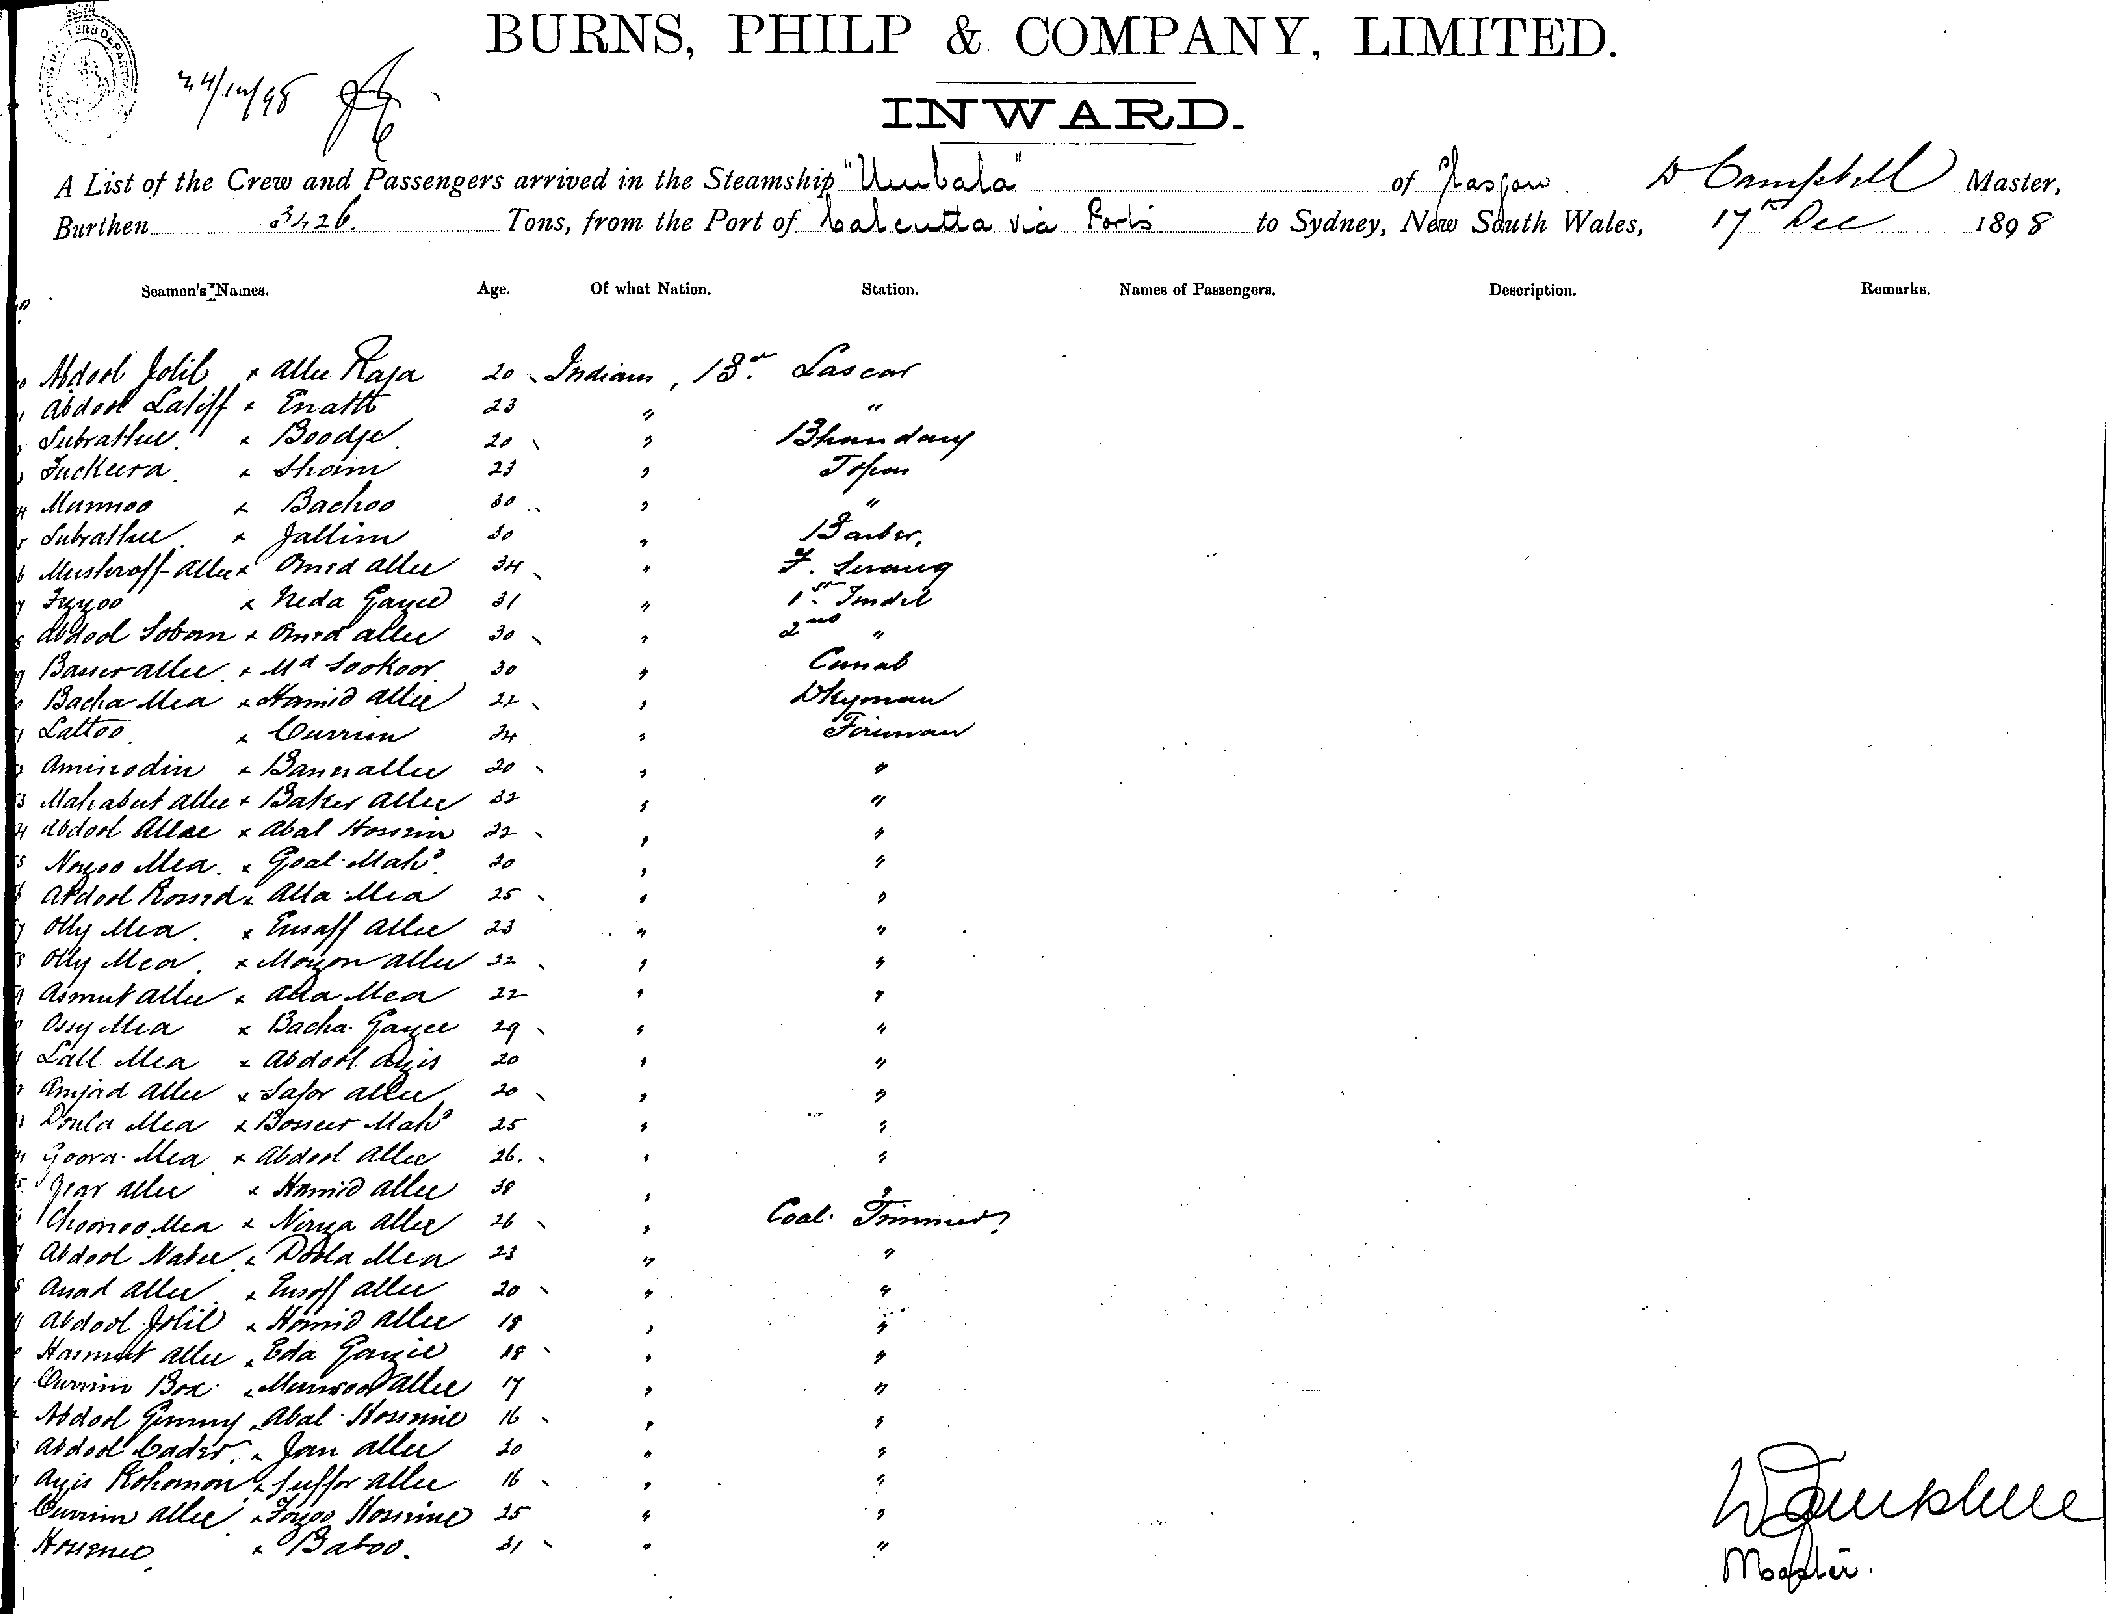 BURNS, PHILP & COMPANY, LIMITED.
24/12/98
INWARD.
A List of the Crew and Passengers arrived in the Steamship "Umbala" of Glasgow D Campbell Master,
Burthen 3426. Tons, from the Port of Calcutta via Ports to Sydney, New South Wales, 17th Dec 1898
Seamen's Names. Age. Of what Nation. Station. Names of Passengers. Description. Remarks.
Abdool Jolil x Allee Raja 20 Indians, Lascar
Abdool Latiff x Enath 23 " "
Subrathee x Boodje 20 " Bhandary
Fuckeera x Sham 23 " Topas
Munnoo x Bachoo 30 " "
Subrathee x Jallim 30 " Barber,
Mushroff Allee x Omed allee 34 " F. Serang
x Neda Gazee 31 " 1st Tindel
Abdool Soban x Omed allee 30 " 2nd "
Basser allee x Md Sookoor 30 " Cassab
Bacha Mea x Hamid Allee 22 " Dkyman
Lattoo x Currim 24 " Fireman
Aminodin x Basserallee 20 " "
Mahabut allee x Baker allee 32 " "
Abdool Allee x Abal Hossein 22 " "
Noyoo Mea x Goal Mahd 20 " "
Abdool x Alla Mea 25 " "
Olly Mea x Ensaff Allee 23 " "
Olly Mea x Moyon allee 32 " "
Asmut allee x Alla Mea 22 " "
Ossy Mea x Bacha Gazee 29 " "
Lall Mea x Abdool Azis 20 " "
Amjad allee x Safor allee 20 " "
Doula Mea x Bosseer Mahd 25 " "
Goora Mea x Abdool Allee 26 " "
Jear allee x Hamid allee 38 " "
Choonoo Mea x allee 26 " Coal Trimmer
Abdool Nabee x Doola Mea 23 " "
Asad allee x Ensoff allee 20 " "
Abdool Jolil x Homid allee 18 " "
Hasmut allee x Eda Gazie 18 " "
Currim Box x Munsoor allee 17 " "
Abdool Gunny x Abal Hossine 16 " "
Abdool Cader x Jan allee 20 " "
Azis Rohomon x Suffor allee 16 " "
Currim allee x Foyoo Hossine 25 " "
Hossenee x Baboo. 31 " "
D Campbell
Master.